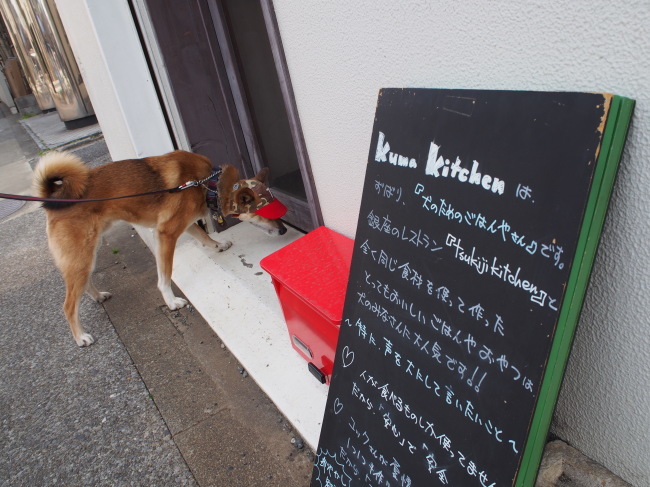 Kuma Kitchen は、
ずばり、『犬のためのごはんやさん』です。
銀座のレストラン『Tsukiji kitchen』と
全く同じ食材を使って作った
とってもおいしいごはんやおやつは、
犬のみなさんに大人気です!!
〜特に声を大にして言いたいこと〜
♡ 人が食べるものしか使ってません
だから「安心」で安全
♡ コックさんが